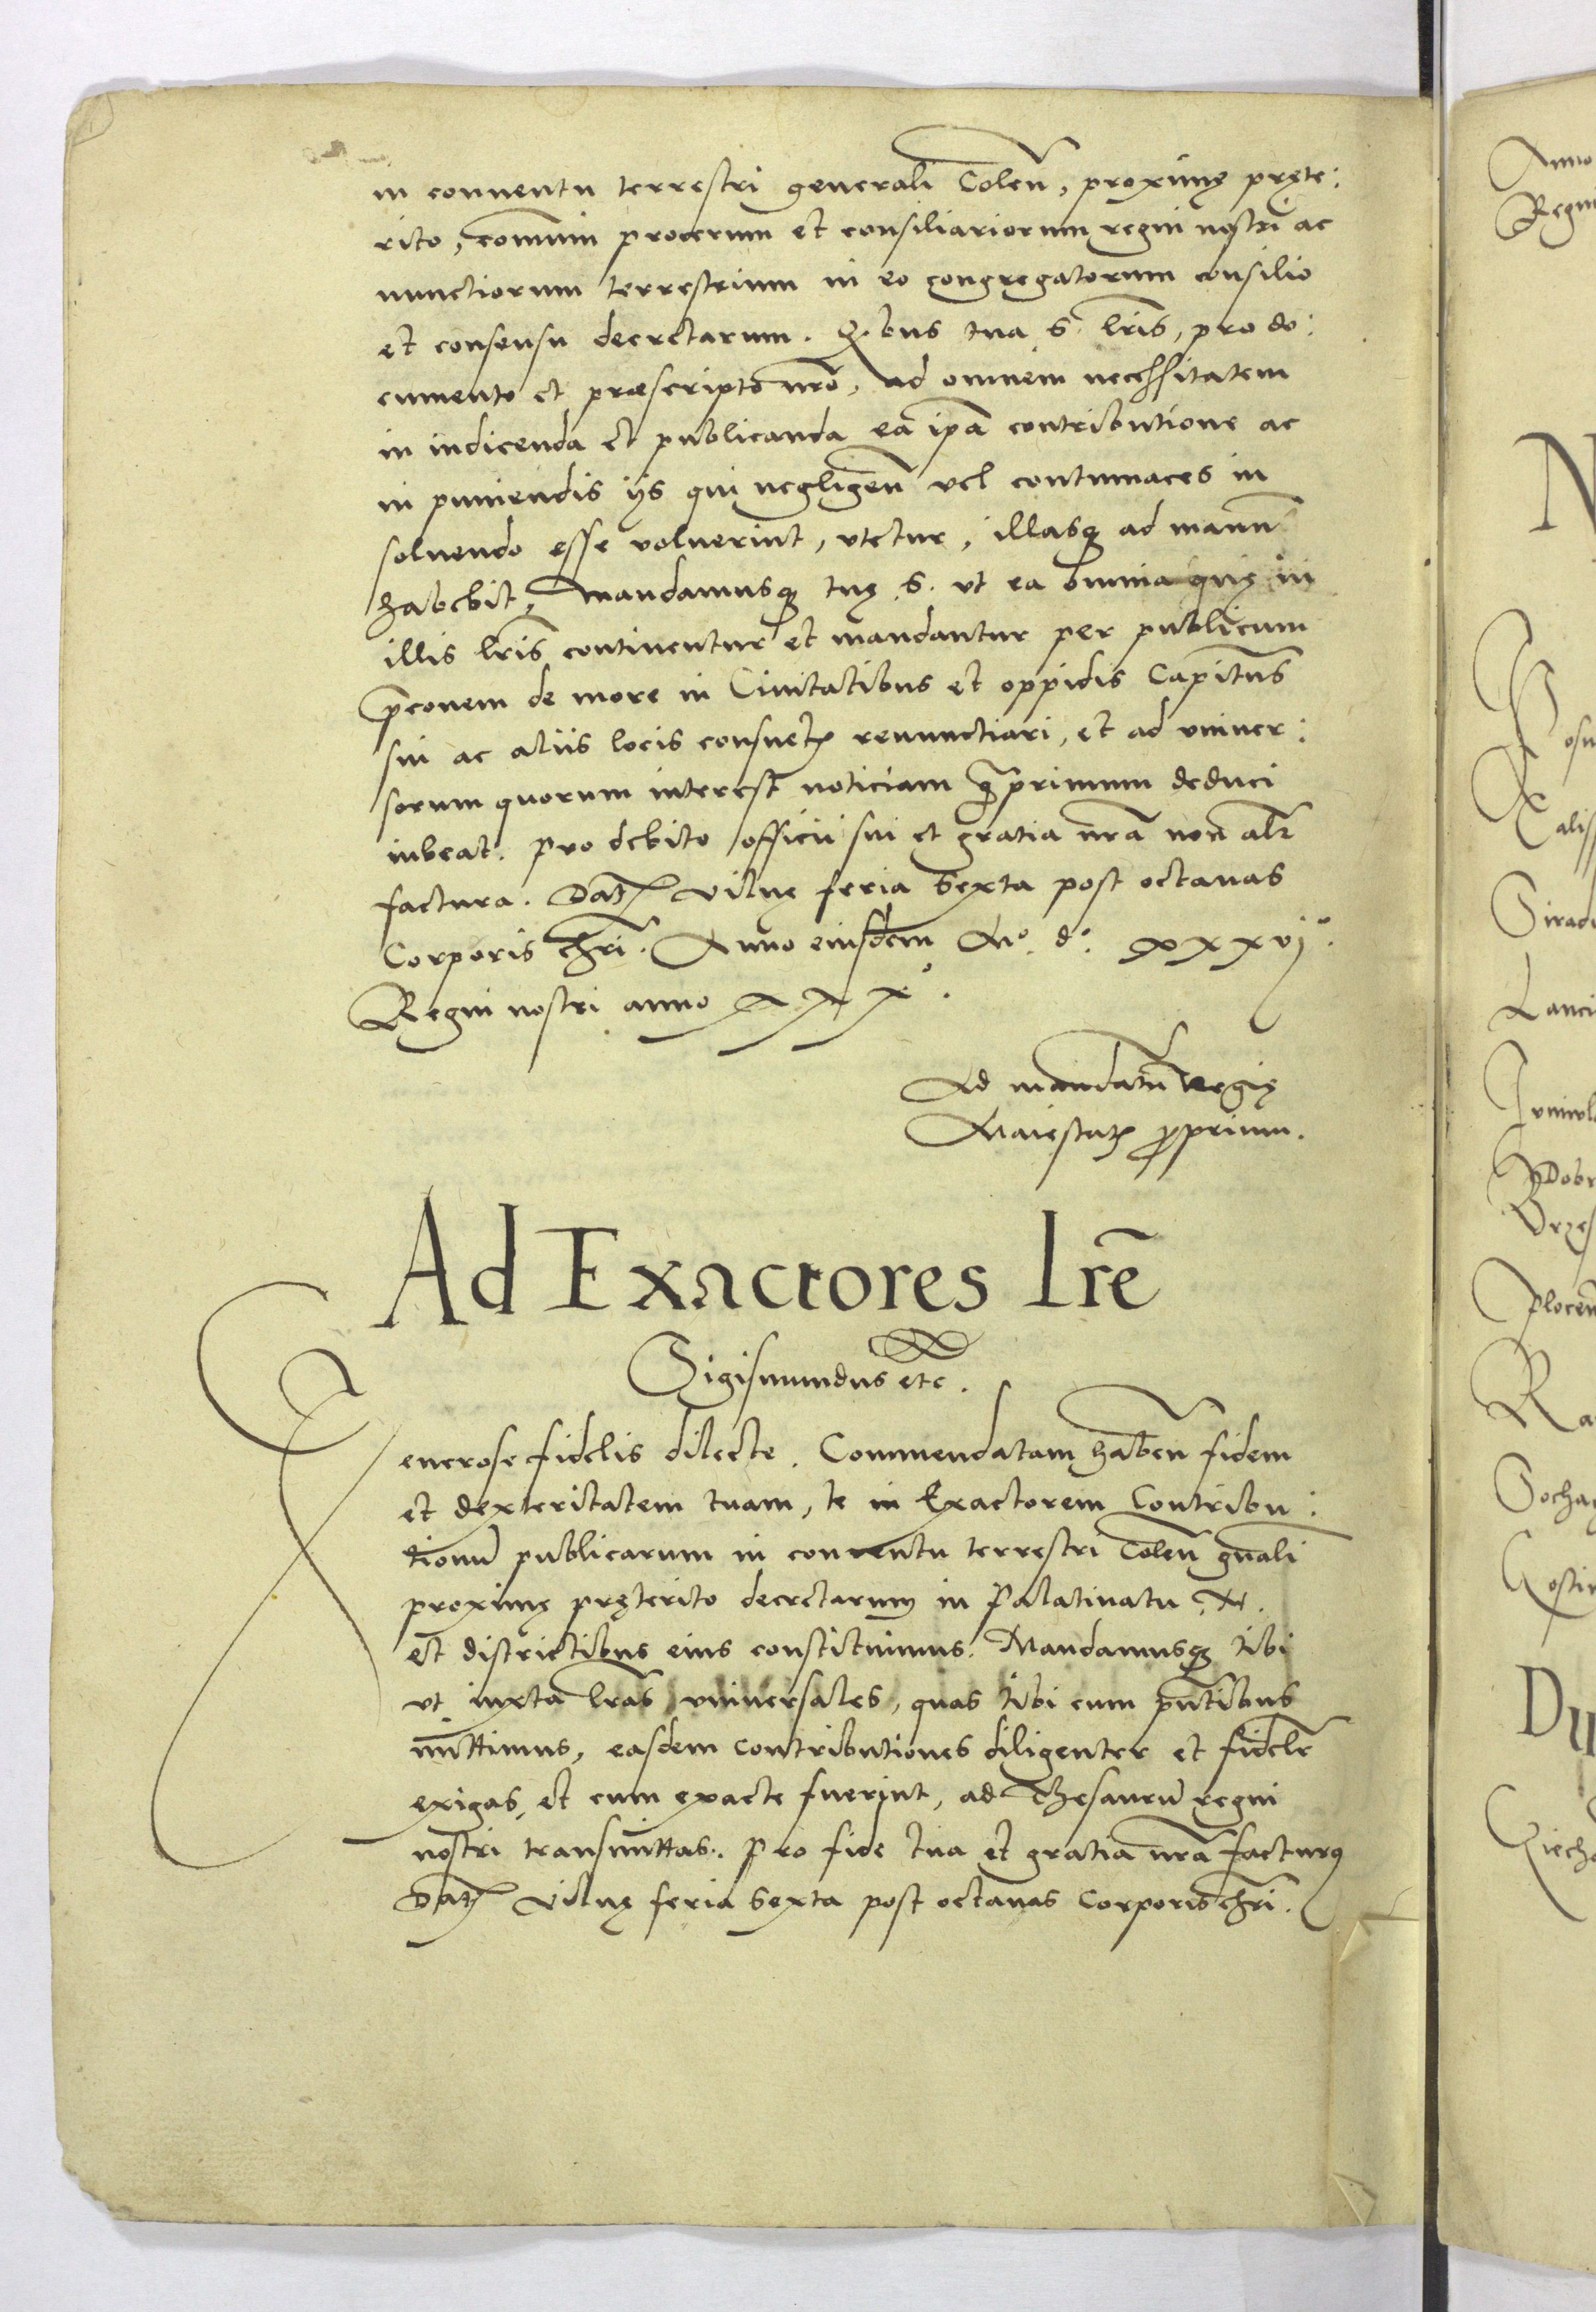 in conuentu terrestri generali Colen̄, proximę pręte:
rito, com̄uni procerum et consiliariorum regni nostri ac
nunctiorum terrestrium in eo congregatorum consilio
et consensu decretarum. Q.bus tua S. lr̄is, pro do:
cumento et præscripto nr̄o, ad omnem necessitatem
in indicenda et publicanda ea ip̄a contributione ac
in puniendis ijs qui negligen̄ vel contumaces in
soluendo esse voluerint, vtetur, illasqȝ ad manū
habebit, mandamusqȝ tuę S. vt ea omnia quę in
illis lr̄is continentur et mandantur per publicum
p̄conem de more in Ciuitatibus et oppidis Capitn̄s
sui ac aliis locis consuetꝭ renunctiari, et ad vniuer:
sorum quorum interest noticiam q̄primum deduci
iubeat. Pro debito officii sui et gratia nr̄a non alr̄
factura. Datꝭ Vilnę feria Sexta post octauas
Corporis chr̄i. Anno eiusdem Mº. dº. xxxvjº.
Regni nostri anno xxxº.
Ad mandatū Regię
Maiestatꝭ ꝓprium.
Ad Exactores lr̄e
Sigismundus etc.
Generose fidelis dilecte. Commendatam haben̄ fidem
et dexteritatem tuam, te in Exactorem Contribu:
tionū publicarum in conuentu terrestri Colen̄ gn̄ali
proximę pręterito decretarum in Palatinatu N.
et districtibus eius constituimus. Mandamusqȝ tibi
vt iuxta lr̄as vniuersales, quas tibi cum pn̄tibus
mittimus, easdem contributiones diligenter et fidelr̄
exigas, et cum exacte fuerint, ad Thesaurū regni
nostri transmittas. Pro fide tua et gratia nr̄a facturꝰ
Datꝭ Vilnę feria Sexta post octauas Corporis chr̄i.
Anno
Regni